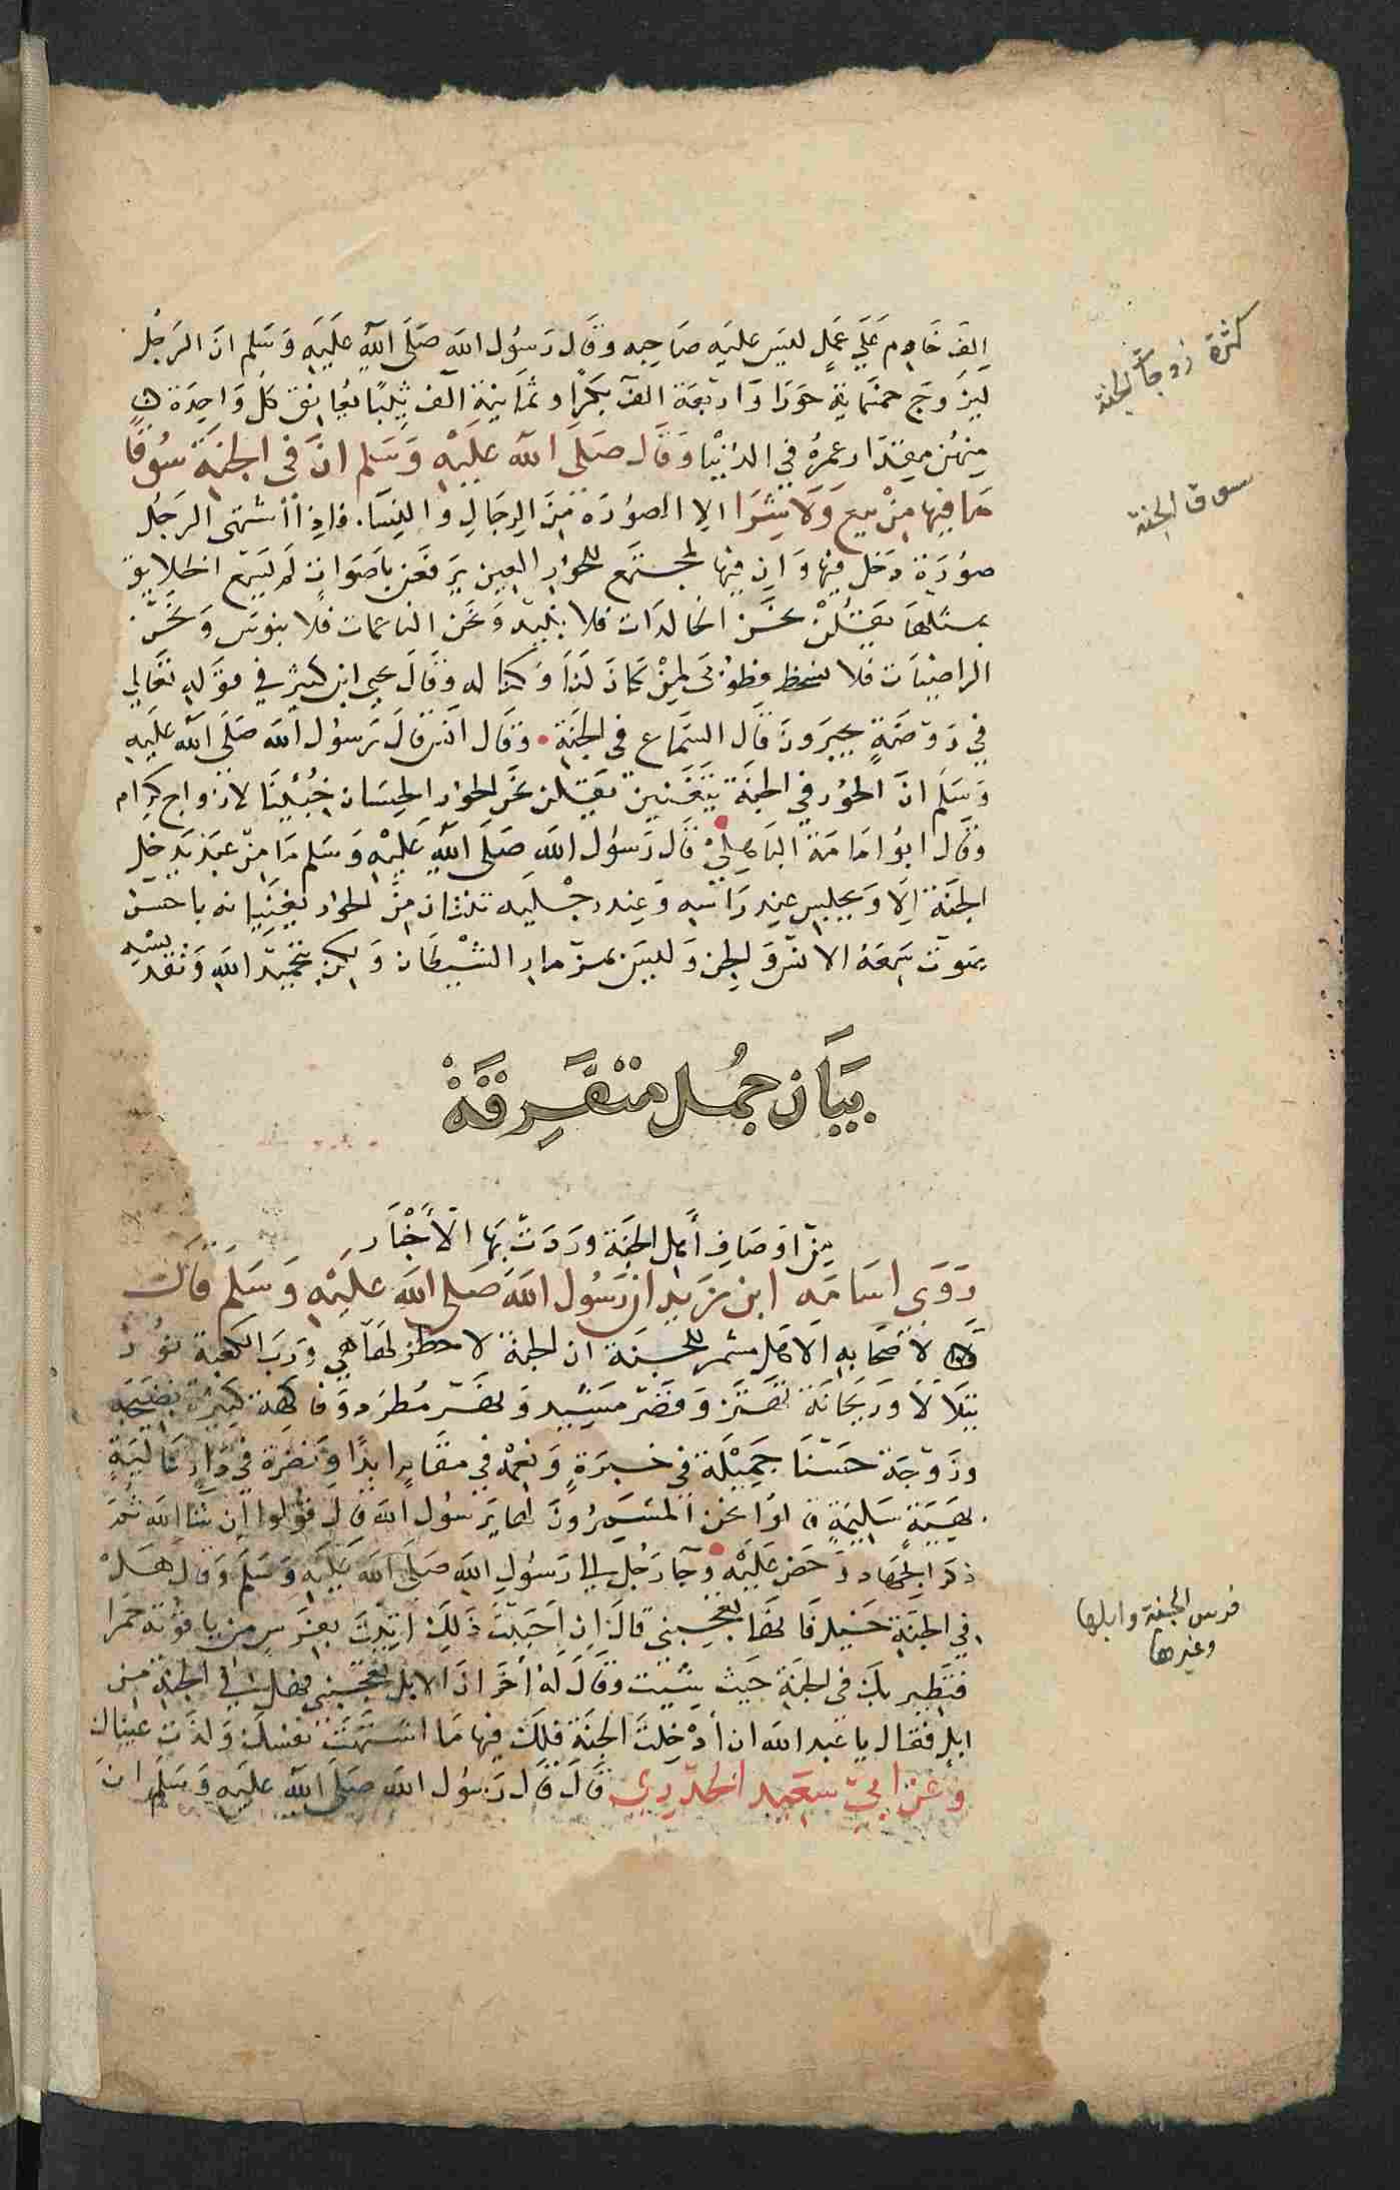 الف خادم علي عمل ليس عليه صاحبه وقال رسول الله صلى الله عليه وسلم ان الرجل
ليزوج خمسماية حورا واربعة الف بكرا وثمانية الف ثيبا يعانق كل واحدة
منهن مقدار عمره في الدنيا وقال صلى الله عليه وسلم ان في الجنة سوقا
ما فيها من بيع ولا شرا الا الصورة من الرجال والنسا. فاذا اشتهى الرجل
صورة دخل فيها وان فيها لمجتمع للحور العين يرفعن باصوات لم يسمع الخلايق
بمثلها يقلن نحن الخالدات فلا نبيد ونحن الناعمات فلا نبوس ونحن
الراضيات فلا نسخط فطوبى لمن كان لنا وكنا له وقال يحيى ابن كثير في قوله تعالي
في روضة يحبرون قال السماع في الجنة • وقال انس قال رسول الله صلى الله عليه
وسلم ان الحور في الجنة يتغنين يقلن نحن الحور الحسان خبئنا لازواج كرام
وقال ابو امامة الباهلي قال رسول الله صلى الله عليه وسلم ما من عبد يدخل
الجنة الا ويجلس عند راسه وعند رجليه ثنتان من الحور يغنيانه باحسن
صوت سمعه الانس والجن وليس بمزمار الشيطان ولكن بتحميد الله وتقديسه
بيان جمل متفرقة
من اوصاف أهل الجنة وردت بها الأخبار
روى اسامه ابن زيد ان رسول الله صلى الله عليه وسلم قال
لاصحابه الا هل مشمر للجنة ان الجنة لا خطر لها هي ورب الكعبة نور
يتلالا وريحانة تهتز وقصر مشيد ونهر مطرد وفاكهة كثيرة نضيجه
وزوجة حسنا جميلة في خبرة ونعمة في مقام ابدا ونضرة في دار عالية
بهية سليمة قالوا نحن المشمرون لها يرسول الله قال قولوا ان شا الله ثم
ذكر الجهاد وحض عليه وجآ رجل الى رسول الله صلى الله عليه وسلم وقال هل
في الجنة خيل فانها تعجبني قال ان احببت ذلك اتيت بفرس من ياقوتة حمرا
فتطير بك في الجنة حيث شيت وقال له اخر ان الابل تعجبني فهل في الجنة من
ابل فقال يا عبد الله ان أدخلت الجنة فلك فيها ما اشتهت نفسك ولذت عيناك
وعن ابي سعيد الخدري قال قال رسول الله صلى الله عليه وسلم ان
كثرة زوجات الجنة
سوق الجنة
فرس الجنة وابلها
وغيرها